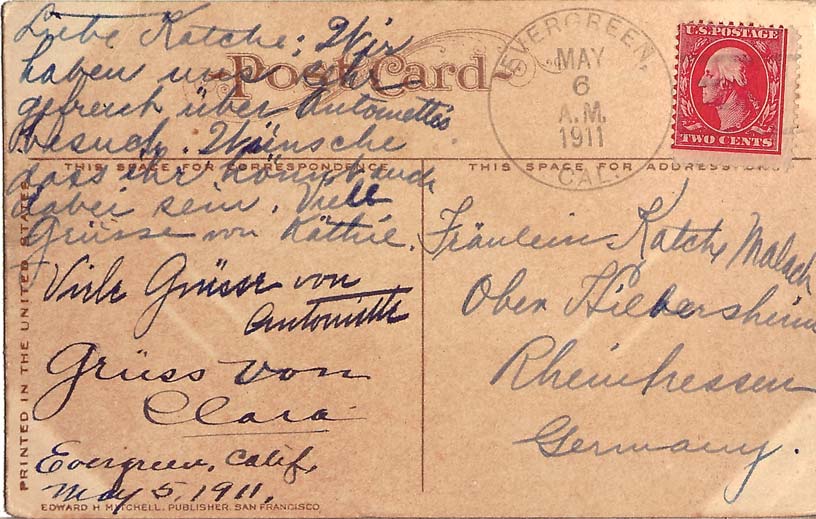 Post Card
Liebe Katche: Wir
haben uns sehr
gefreut über Antoinette's
Besuch. Wünsche
dass ihr könnt auch
dabei sein. Viele
Grüsse von Käthie.
Viele Grüsse von
Antoinette
Grüss von
Clara
Evergreen, Calif,
May 5, 1911,
EVERGREEN,
MAY
6
A.M.
1911
CAL.
U.S. POSTAGE
TWO CENTS
THIS SPACE FOR CORRESPONDENCE
THIS SPACE FOR ADDRESS ONLY
Fräulein Katche Malach
Ober Hilbersheim
Rheinhessen
Germany.
PRINTED IN THE UNITED STATES
EDWARD H MITCHELL, PUBLISHER, SAN FRANCISCO